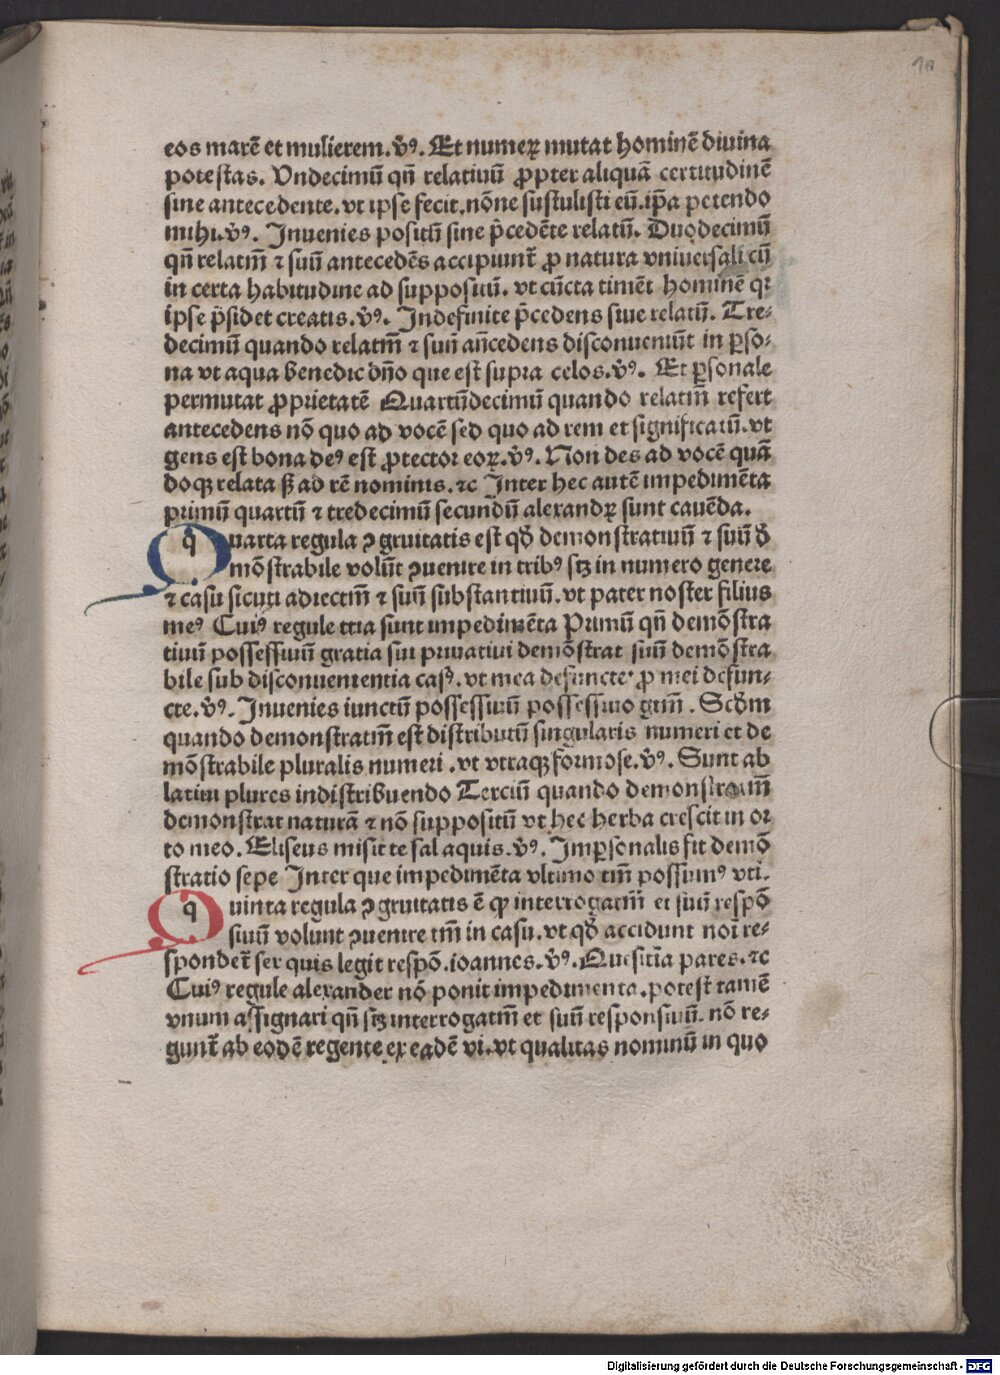 10
eos marē et mulierem. v̄ꝰ. Et numeꝝ mutat hominē diuina
potestas. Vndecimū qn̄ relatiuū ꝓpter aliquā certitudinē
sine antecedente. vt ipse fecit. nōne sustulisti eū. ip̄a petendo
mihi. v̄ꝰ. Inuenies positū sine p̄cedēte relatū. Duodecimū
qn̄ relatm̄ ⁊ suū antecedēs accipiunt̄ ꝓ natura vniuersali cū
in certa habitudine ad suppositū. vt cūcta timēt hominē qꝛ
ipse p̄sidet creatis. v̄ꝰ. Indefinite p̄cedens siue relatū. Tre⸗
decimū quando relatm̄ ⁊ suū an̄cedens disconueniūt in ꝑso⸗
na vt aqua benedic dn̄o que est supra celos. v̄ꝰ. Et ꝑsonale
permutat ꝓprietatē Quartūdecimū quando relatm̄ refert
antecedens nō quo ad vocē sed quo ad rem et significatū. vt
gens est bona deꝰ est ꝓtector eoꝝ. v̄ꝰ. Non des ad vocē quā
doqꝫ relata ẞ ad rē nominis. ⁊c Inter hec autē impedimēta
primū quartū ⁊ tredecimū secundū alexandꝝ sunt cauēda.
Quarta regula ꝯgruitatis est qd̄ demonstratiuū ⁊ suū d̄
mōstrabile volūt ꝯuenire in tribꝰ sꝫ in numero genere
⁊ casu sicuti adiectm̄ ⁊ suū substantiuū. vt pater noster filius
meꝰ Cuiꝰ regule tria sunt impedimēta Primū qn̄ demōstra
tiuū possessiuū gratia sui priuatiui demōstrat suū demōstra
bile sub disconuenientia casꝰ. vt mea defuncte ꝓ mei defun⸗
cte. v̄ꝰ. Inuenies iunctū possessiuū possessiuo gtm̄. Scd̄m
quando demonstratm̄ est distributū singularis numeri et de
mōstrabile pluralis numeri. vt vtraqꝫ formose. v̄ꝰ. Sunt ab
latini plures indistribuendo Terciū quando demonstratm̄
demonstrat naturā ⁊ nō suppositū vt hec herba crescit in or
to meo. Eliseus misit te sal aquis. v̄ꝰ. Imꝑsonalis fit demō
stratio sepe Inter que impedimēta vltimo tm̄ possumꝰ vti.
Quinta regula ꝯgruitatis ē ꝙ interrogatm̄ et suū respō
siuū volunt ꝯuenire tm̄ in casu. vt qd̄ accidunt noī re⸗
spondet̄ sex quis legit respō. ioannes. v̄ꝰ. Quesitīa pares. ⁊c
Cuiꝰ regule alexander nō ponit impedimenta. potest tamē
vnum assignari qn̄ sꝫ interrogatm̄ et suū responsiuū. nō re⸗
gunt̄ ab eodē regente ex eadē vi. vt qualitas nominū in quo
Digitalisierung gefördert durch die Deutsche Forschungsgemeinschaft - DFG